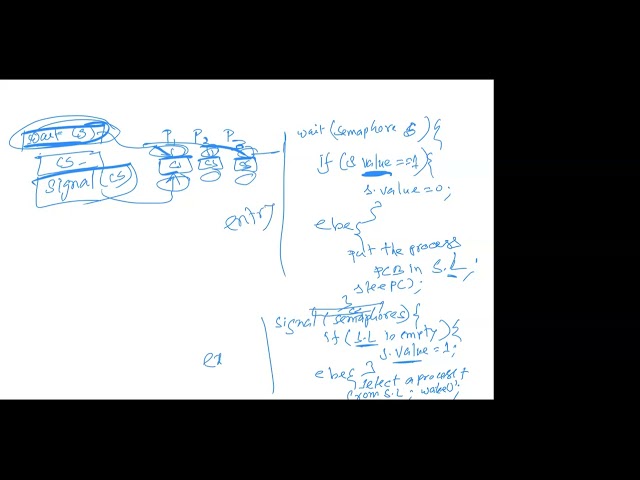 wait (S)
CS
Signal (CS)
P1 P2 P3
CS CS CS
entry
wait (semaphore S) {
If (S value == 1) {
S.value = 0;
}
else {
put the process
PCB in S.L;
sleep();
}
signal (semaphore S) {
if (S.L is empty) {
S.value = 1;
}
else {
select a process
from S.L; wakeup();
ex